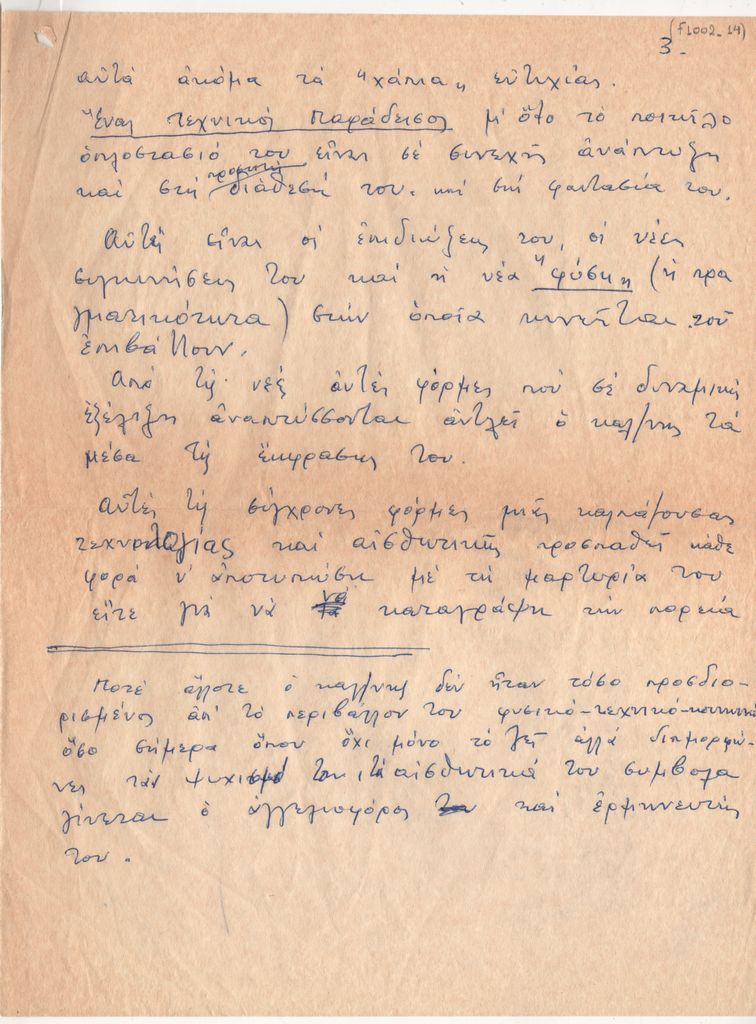 (F1002-14)
3-
αὐτά ἀκόμα τά "χάπια" εὐτυχίας.
Ἕνας τεχνικός παράδεισος μ' ὅλο τό ποικίλο
ὁπλοστάσιό του εἶναι σέ συνεχῆ ἀνάπτυξη
καί στή διάθεσή του. καί στή φαντασία του.
Αὐτές εἶναι οἱ ἐπιδιώξεις του, οἱ νέες
συγκινήσεις του καί ἡ νέα "φύση" (ἡ πρα
γματικότητα) στήν ὁποία κινεῖται τοῦ
ἐπιβάλλουν.
Ἀπό τίς νέες αὐτές φόρμες πού σέ δυναμική
ἐξέλιξη ἀναπτύσσονται ἀντλεῖ ὁ καλ/νης τά
μέσα τῆς ἔκφρασης του.
Αὐτές τίς σύγχρονες φόρμες μιᾶς καλπάζουσας
τεχνολογίας καί αἰσθητικῆς προσπαθεῖ κάθε
φορά ν' ἀποτυπώση μέ τή μαρτυρία του
εἴτε γιά νά καταγράψη τήν πορεία
Ποτέ ἄλλοτε ὁ καλ/νης δέν ἦταν τόσο προσδιο-
ρισμένος ἀπ' τό περιβάλλον του φυσικό-τεχνικό-κοινωνικό
ὅσο σήμερα ὅπου ὄχι μόνο τό ζεῖ ἀλλά διαμορφώ-
νει τόν ψυχισμό του, τά αἰσθητικά του σύμβολα
γίνεται ὁ ἀγγελιοφόρος καί ἑρμηνευτής
του.